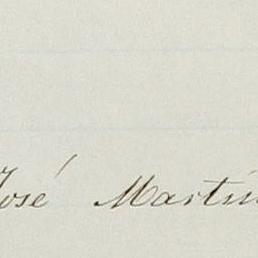 José Martín